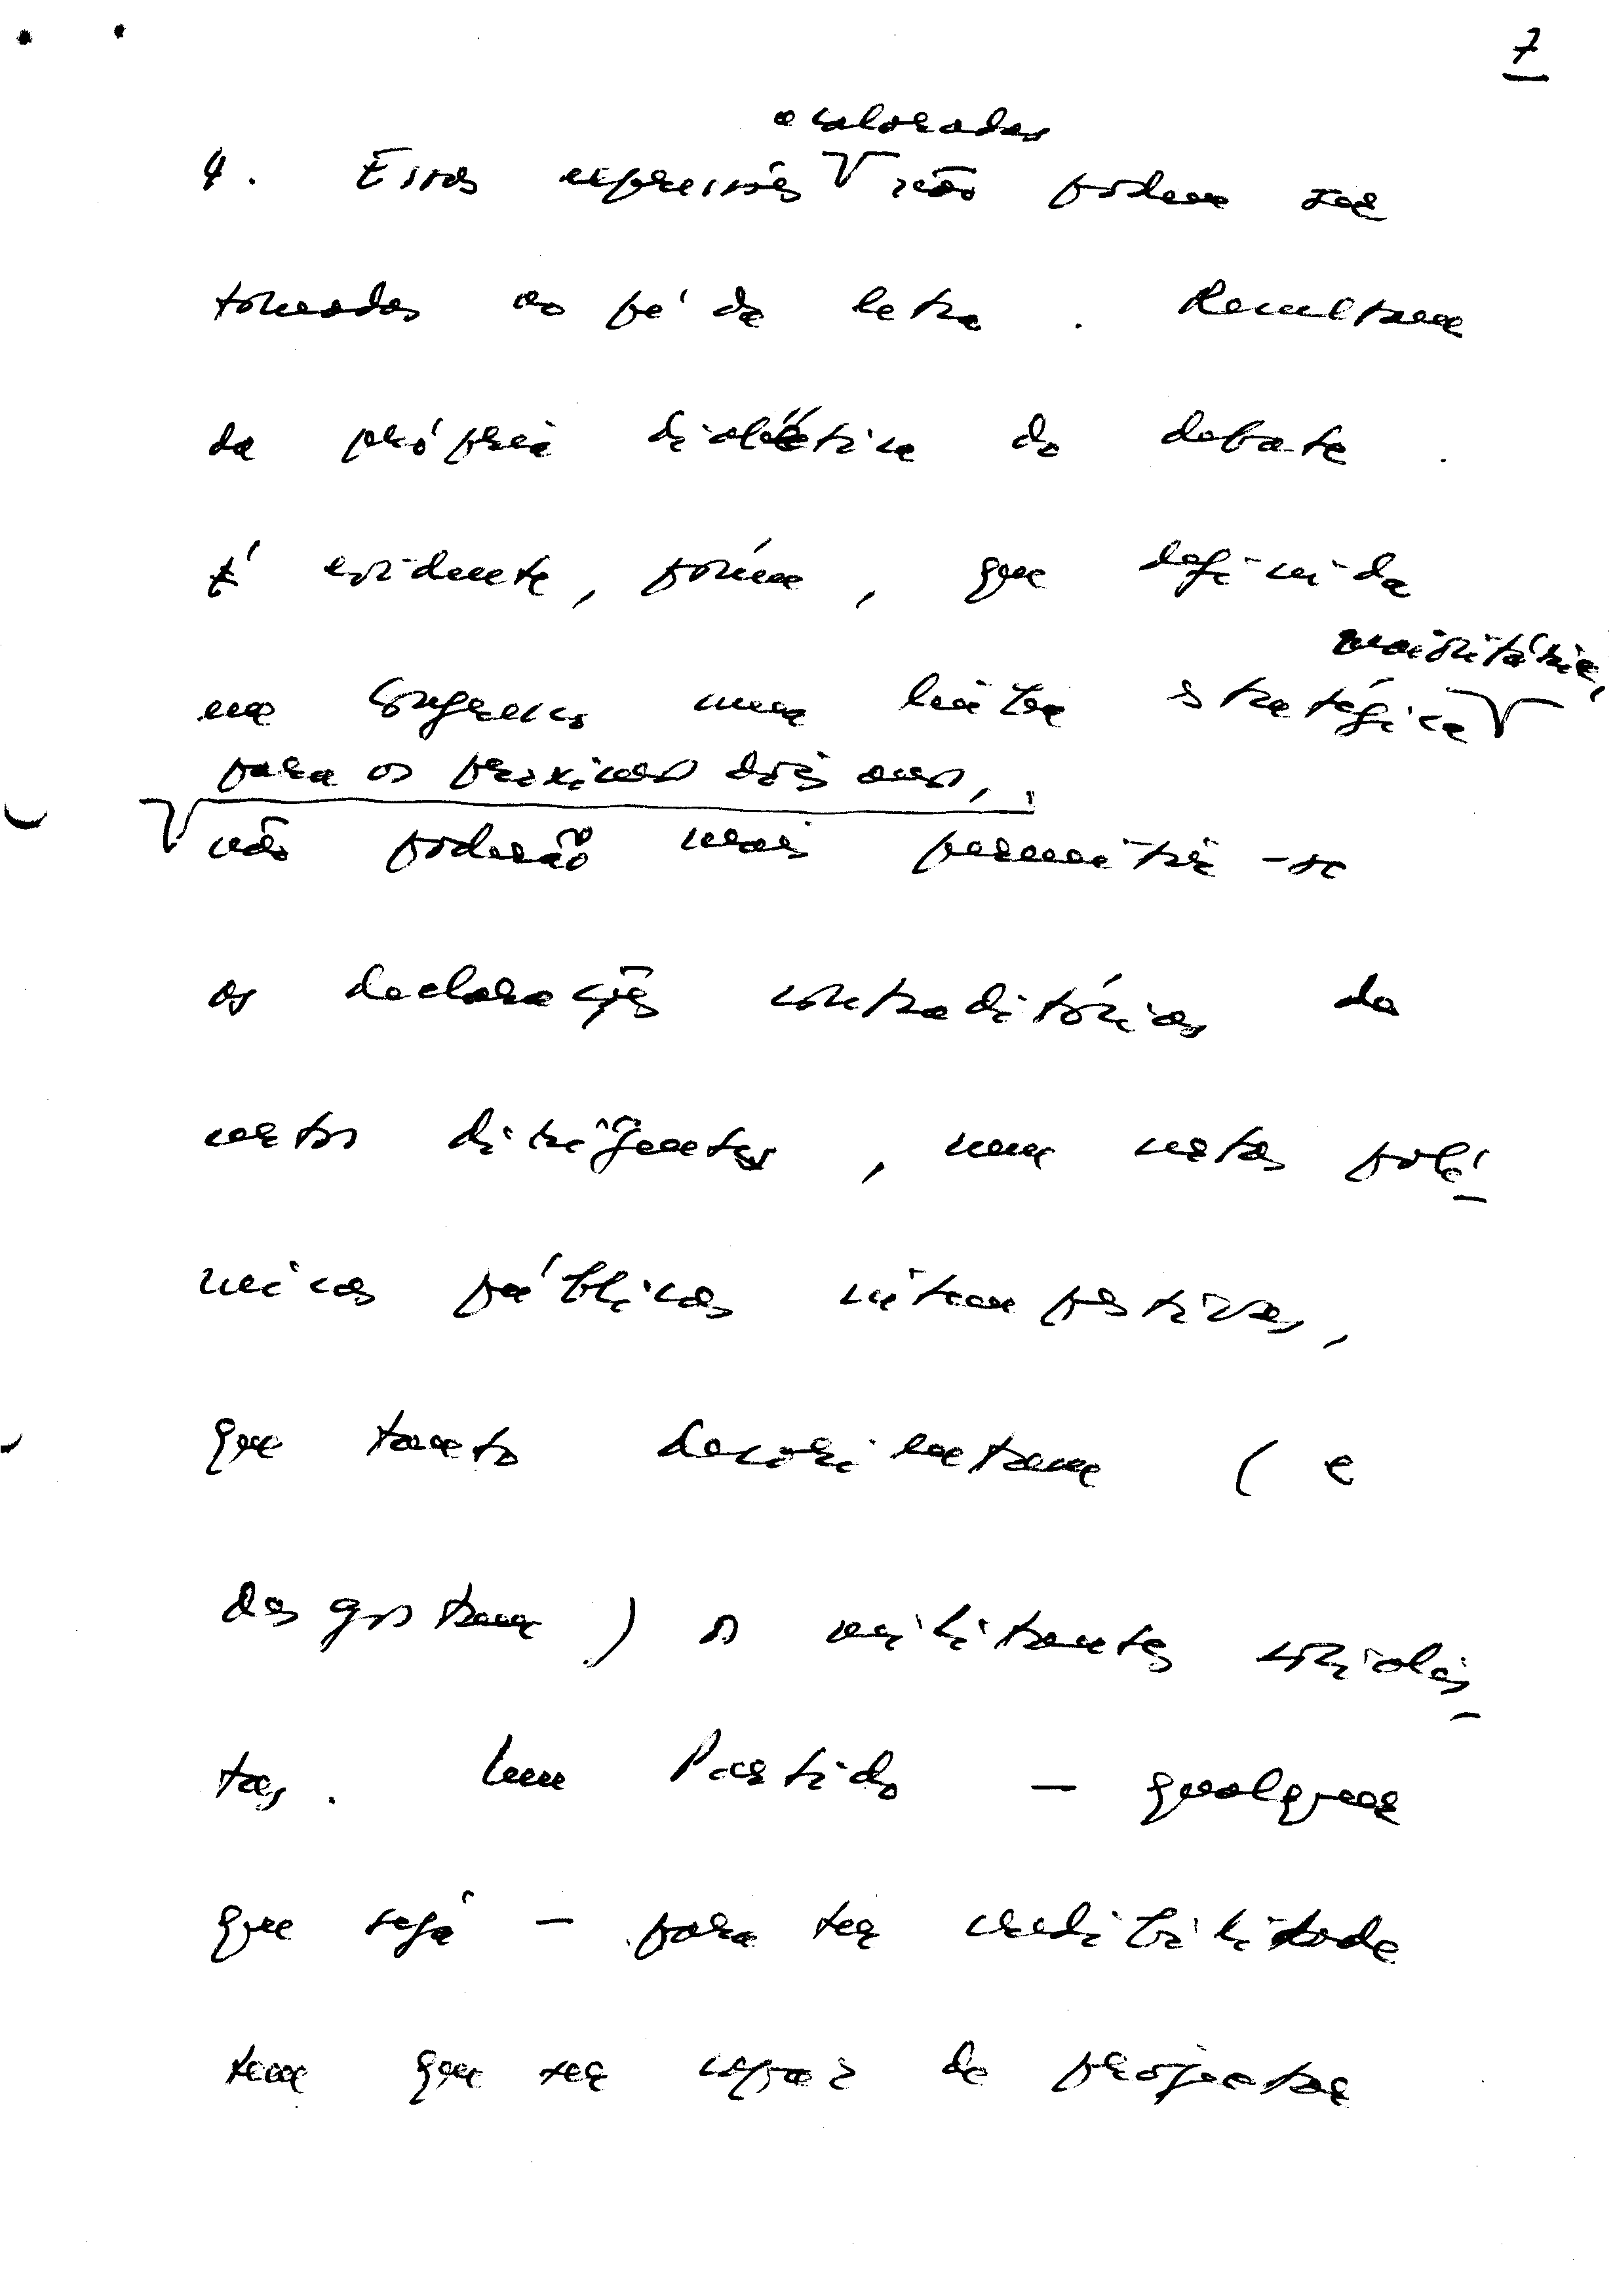 7
acaloradas
4. Essas expressões não podem ser
tomadas ao pé da letra. Resultam
da própria dialéctica do debate.
É evidente, porém, que definida
maioritária,
no Congresso uma linha estratégica
para os proximos dois anos,
não poderão mais permitir-se
as declarações contraditórias de
certos dirigentes, nem certas polé-
micas públicas intempestivas,
que tanto desorientam (e
desgostam) os militantes socialis-
tas. Um Partido - qualquer
que seja - para ter credibilidade
tem que ser capaz de projectar